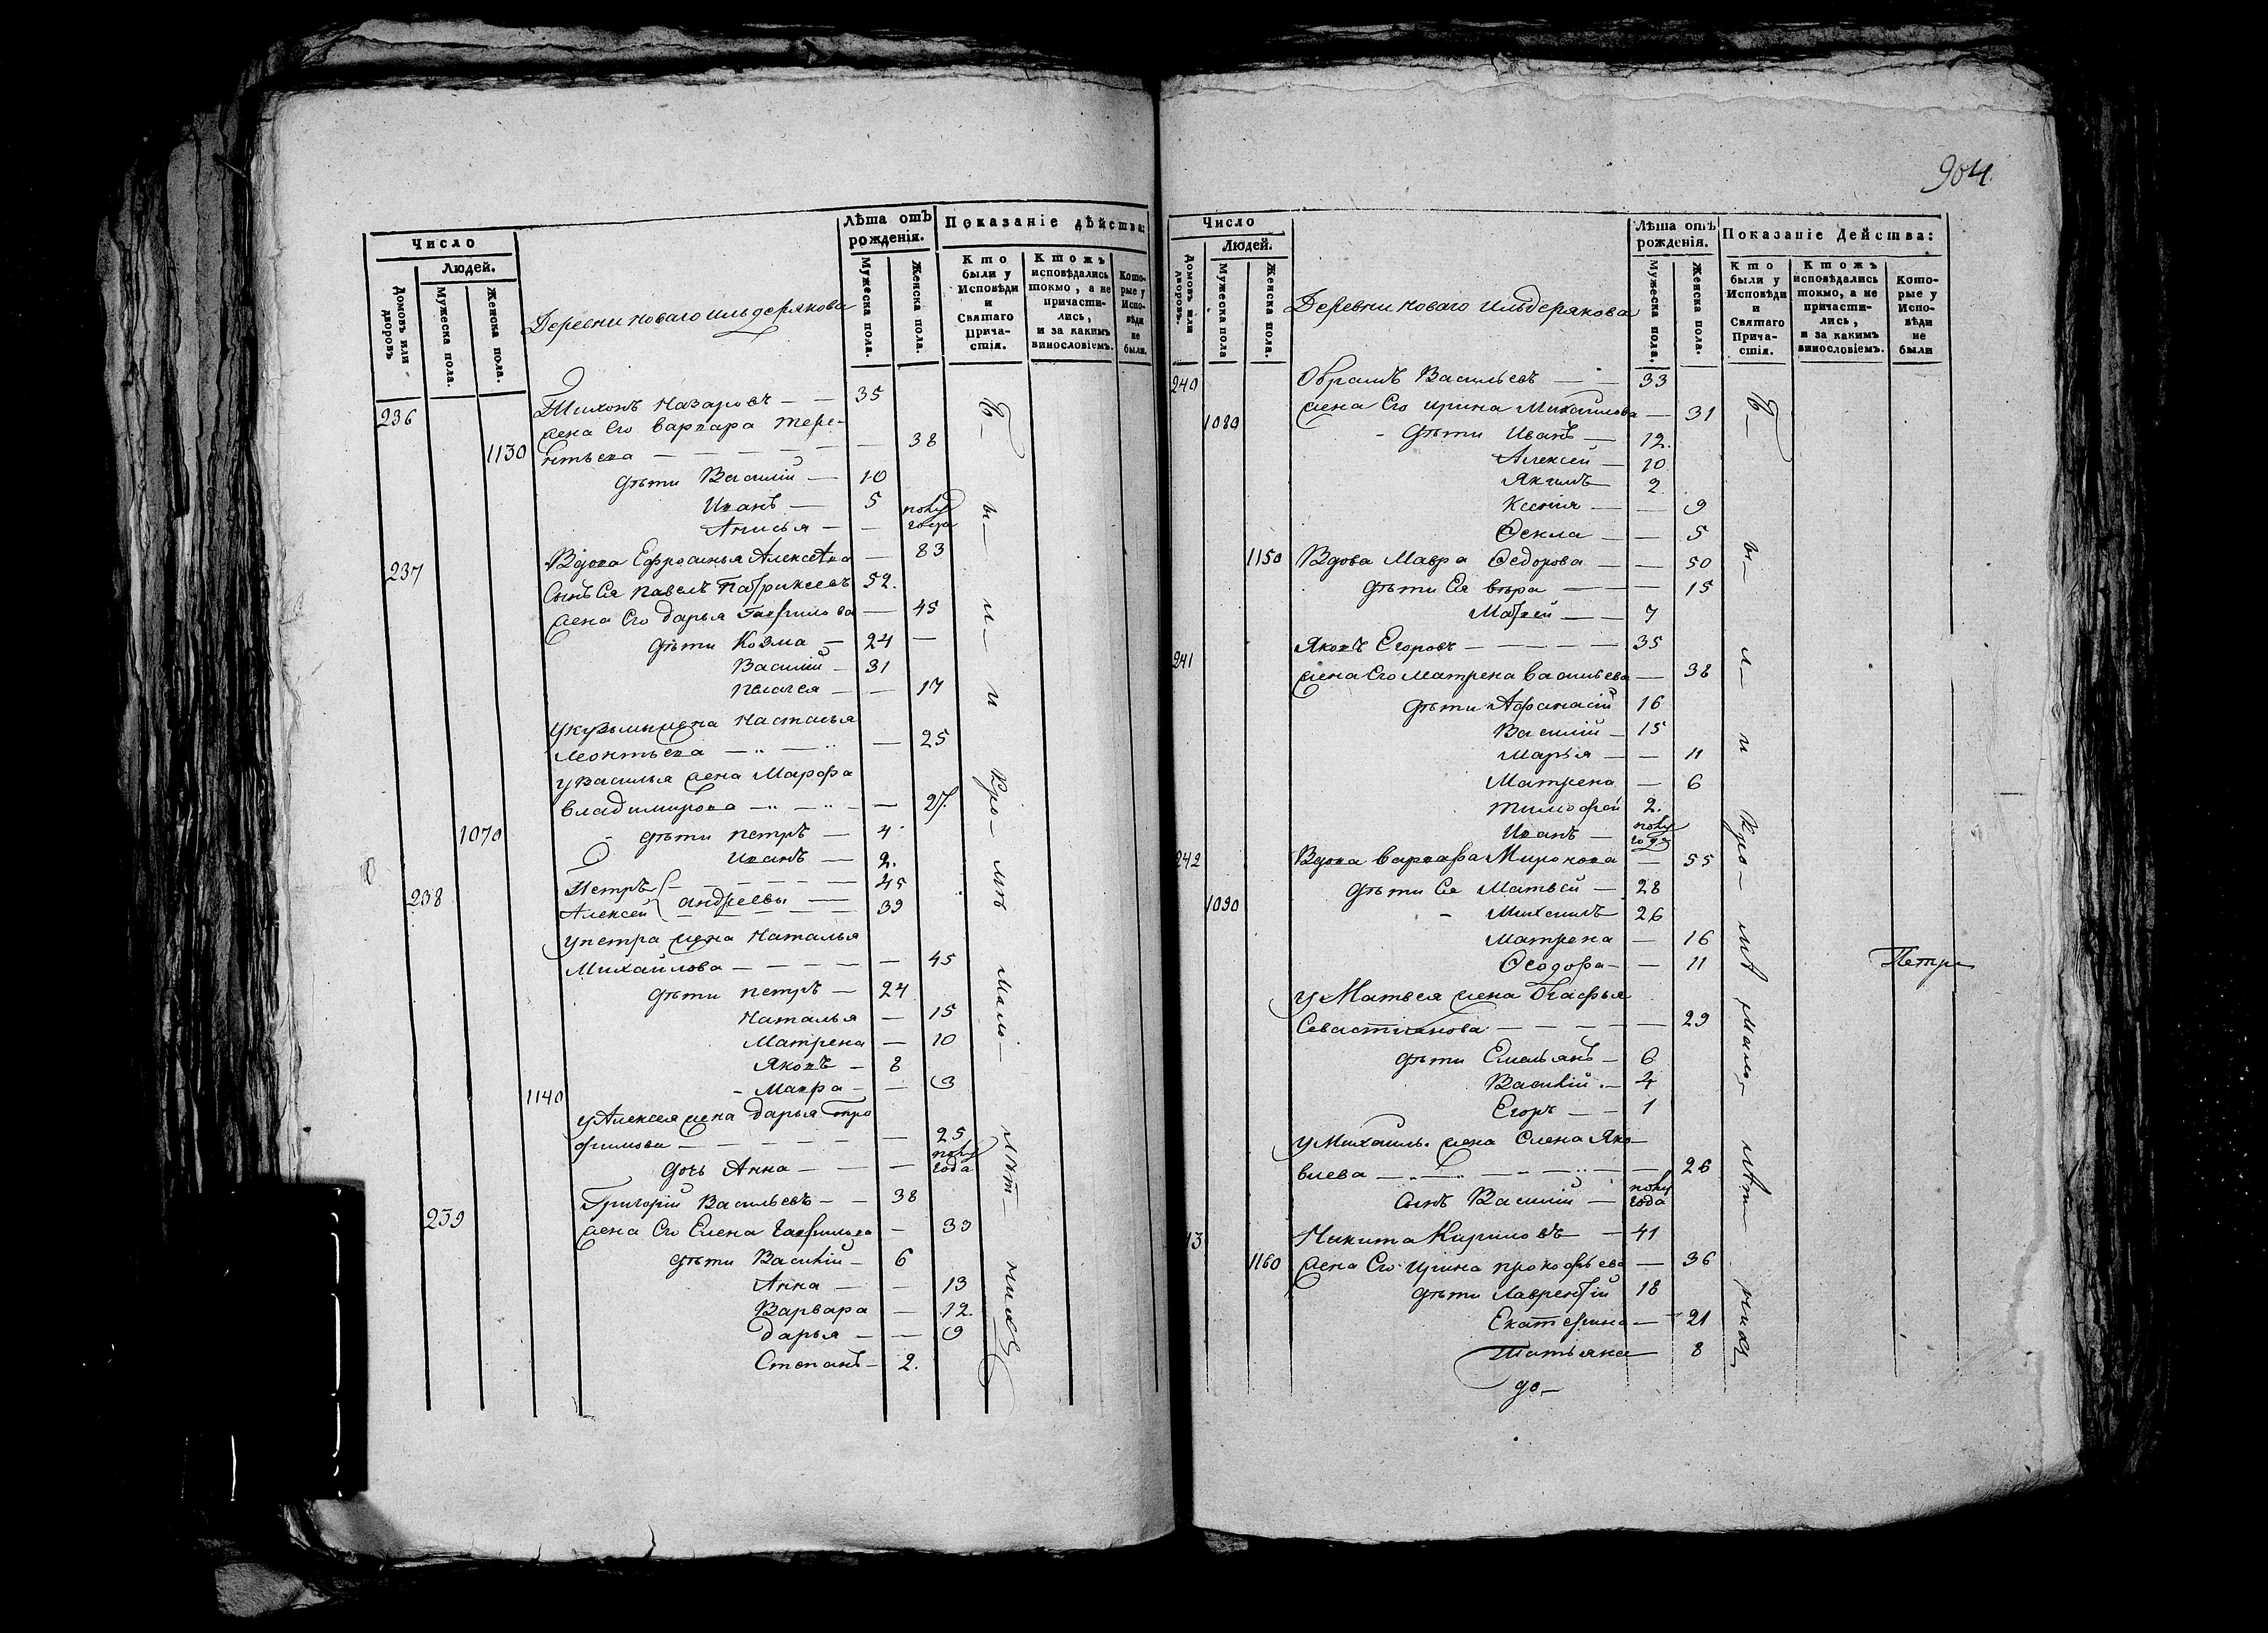 904.
Число
Людей.
Домовъ или дворовъ
Мужеска пола.
Женска пола.
Деревни Новаго Ильдерякова
Лѣта отъ рожденія.
Мужеска пола.
Женска пола.
Показаніе дѣйства:
Кто были у Исповѣди и Святаго Прича-стія.
Ктожъ исповѣдались токмо, а не причасти-лись, и за какимъ винословіемъ.
Кото-рые у Испо-вѣди не были.
236 Тихонъ Назаровъ — — 35
жена Его варвара тере-
1130 нтьева — — — — — 38
дѣти Василій — 10
Иванъ — 5
Анисья — — полу года
237 Вдова Ефросинья Алексѣева — 83
Сынъ Ея Павелъ Патрикеевъ 52.
жена Его дарья Гаврилова — 45
дѣти Козма — 24 —
Василій — 31
Пелагея — — 17
у кузьмы жена Настасья
Леонтьева — — — 25
у Василья жена Марфа
владимирова — — — 27.
1070 дѣти петръ — 4
Иванъ — 2.
238 Петръ — — — — 45
Алексей андреевы — 39
у петра жена Наталья
Михайлова — — — — — 45
дѣти петръ — 24
Наталья — 15
Матрена — 10
Яковъ — 8
1140 - Мавра — — 3
у Алексея жена дарья тро
фимова — — — — — 25
дочь Анна — — — полу года
239 Григорій Васильевъ — — 38
жена Его Елена Гаврилова — 33
дѣти Василій — 6
Анна — — 13
Варвара — 12.
дарья — — 9
Степанъ — 2.
Бы- ли- и кро- мѣ мало- лѣт- нихъ
Число
Людей.
Домовъ или дворовъ.
Мужеска пола
Женска пола.
Деревни Новаго Ильдерякова
Лѣта отъ рожденія.
Мужеска пола.
Женска пола.
Показаніе Действа:
Кто были у Исповѣди и Святаго Прича-стія.
Ктожъ исповѣдались токмо, а не причасти-лись, и за какимъ винословіемъ.
Кото-рые у Испо-вѣди не были
240 Обрамъ Васильевъ — — 33
1080 жена Его Ирина Михайлова — 31
- дѣти Иванъ — 12.
Алексей — 10
Якимъ — 2
Ксенія — — 9
Ѳекла — — 5
1150 Вдова Мавра Ѳедорова — — 50
дѣти Ея вѣра — — 15
Матвей — — 7
241 Яковъ Егоровъ — — — — 35
жена Его Матрена Васильева — 38
дѣти Афанасій 16
Василій — 15
Марья — — 11
Матрена — 6
Тимофей 2.
Иванъ — полу года
242 Вдова варвара Миронова — 55
дѣти Ея Матвей — 28
1090 - Михаилъ 26
Матрена — 16
Ѳеодора — — 11
у Матвея жена Агафья
Севастиянова — — — — — 29
дѣти Емельянъ — 6
Василій — 4
Егоръ — — 1
у Михаилы жена Елена Яко-
влева — — — — — 26
Сынъ Василій — полу года
Никита Кириловъ — 41
1160 жена Его Ирина прокофьева — 36
дѣти Лаврентій 18
Екатерина — 21
Татьяна 8
до-
Бы- ли- и кро- мѣ мало- лѣт- нихъ
Петръ